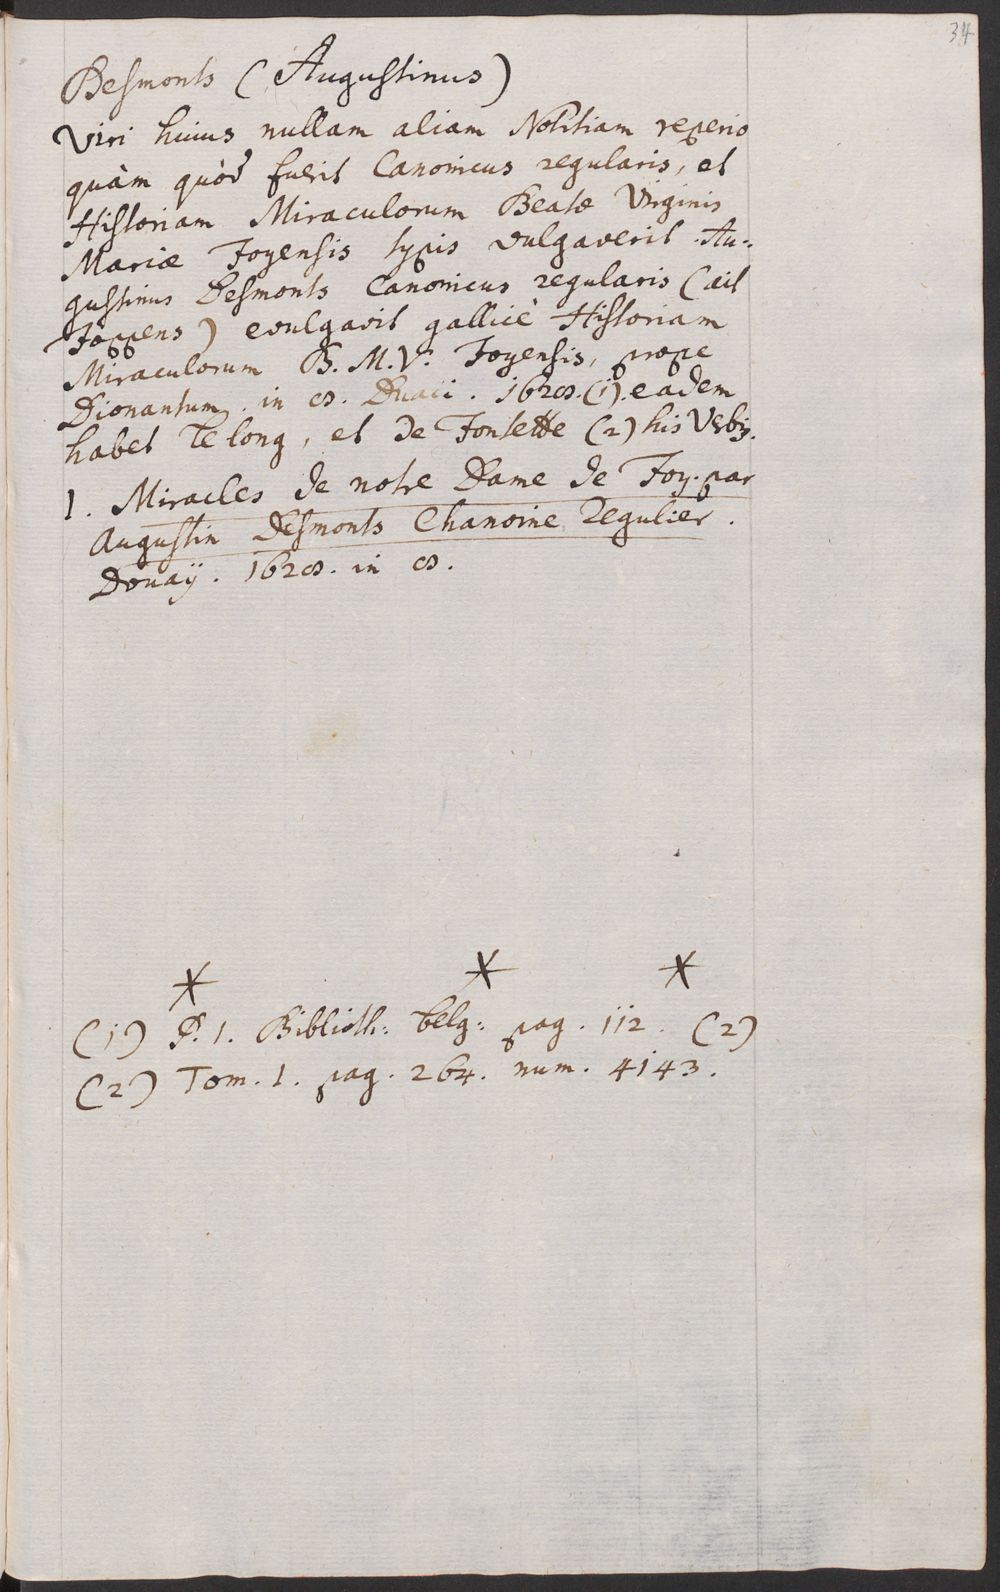 34
Desmonts (Augustinus)
Viri huius nullam aliam Notitiam reperio
quàm quòd fuerit Canonicus regularis, et
Historiam Miraculorum Beatæ Virginis
Mariæ Foyensis typis vulgaverit. Au-
gustinus Desmonts Canonicus regularis (ait
Foppens) evulgavit gallicè Historiam
Miraculorum B. M. V. Foyensis, prope
Dionantum. in 8. Duaci. 1628. (1). eadem
habet Le long, et de Fontette (2) his Verbis.
1. Miracles de notre Dame de Foy. par
Augustin Desmonts Chanoine Regulier.
Douaÿ. 1628. in 8.
(1) P. 1. Biblioth: belg: pag. 112. (2)
(2) Tom. 1. pag. 264. num. 4143.